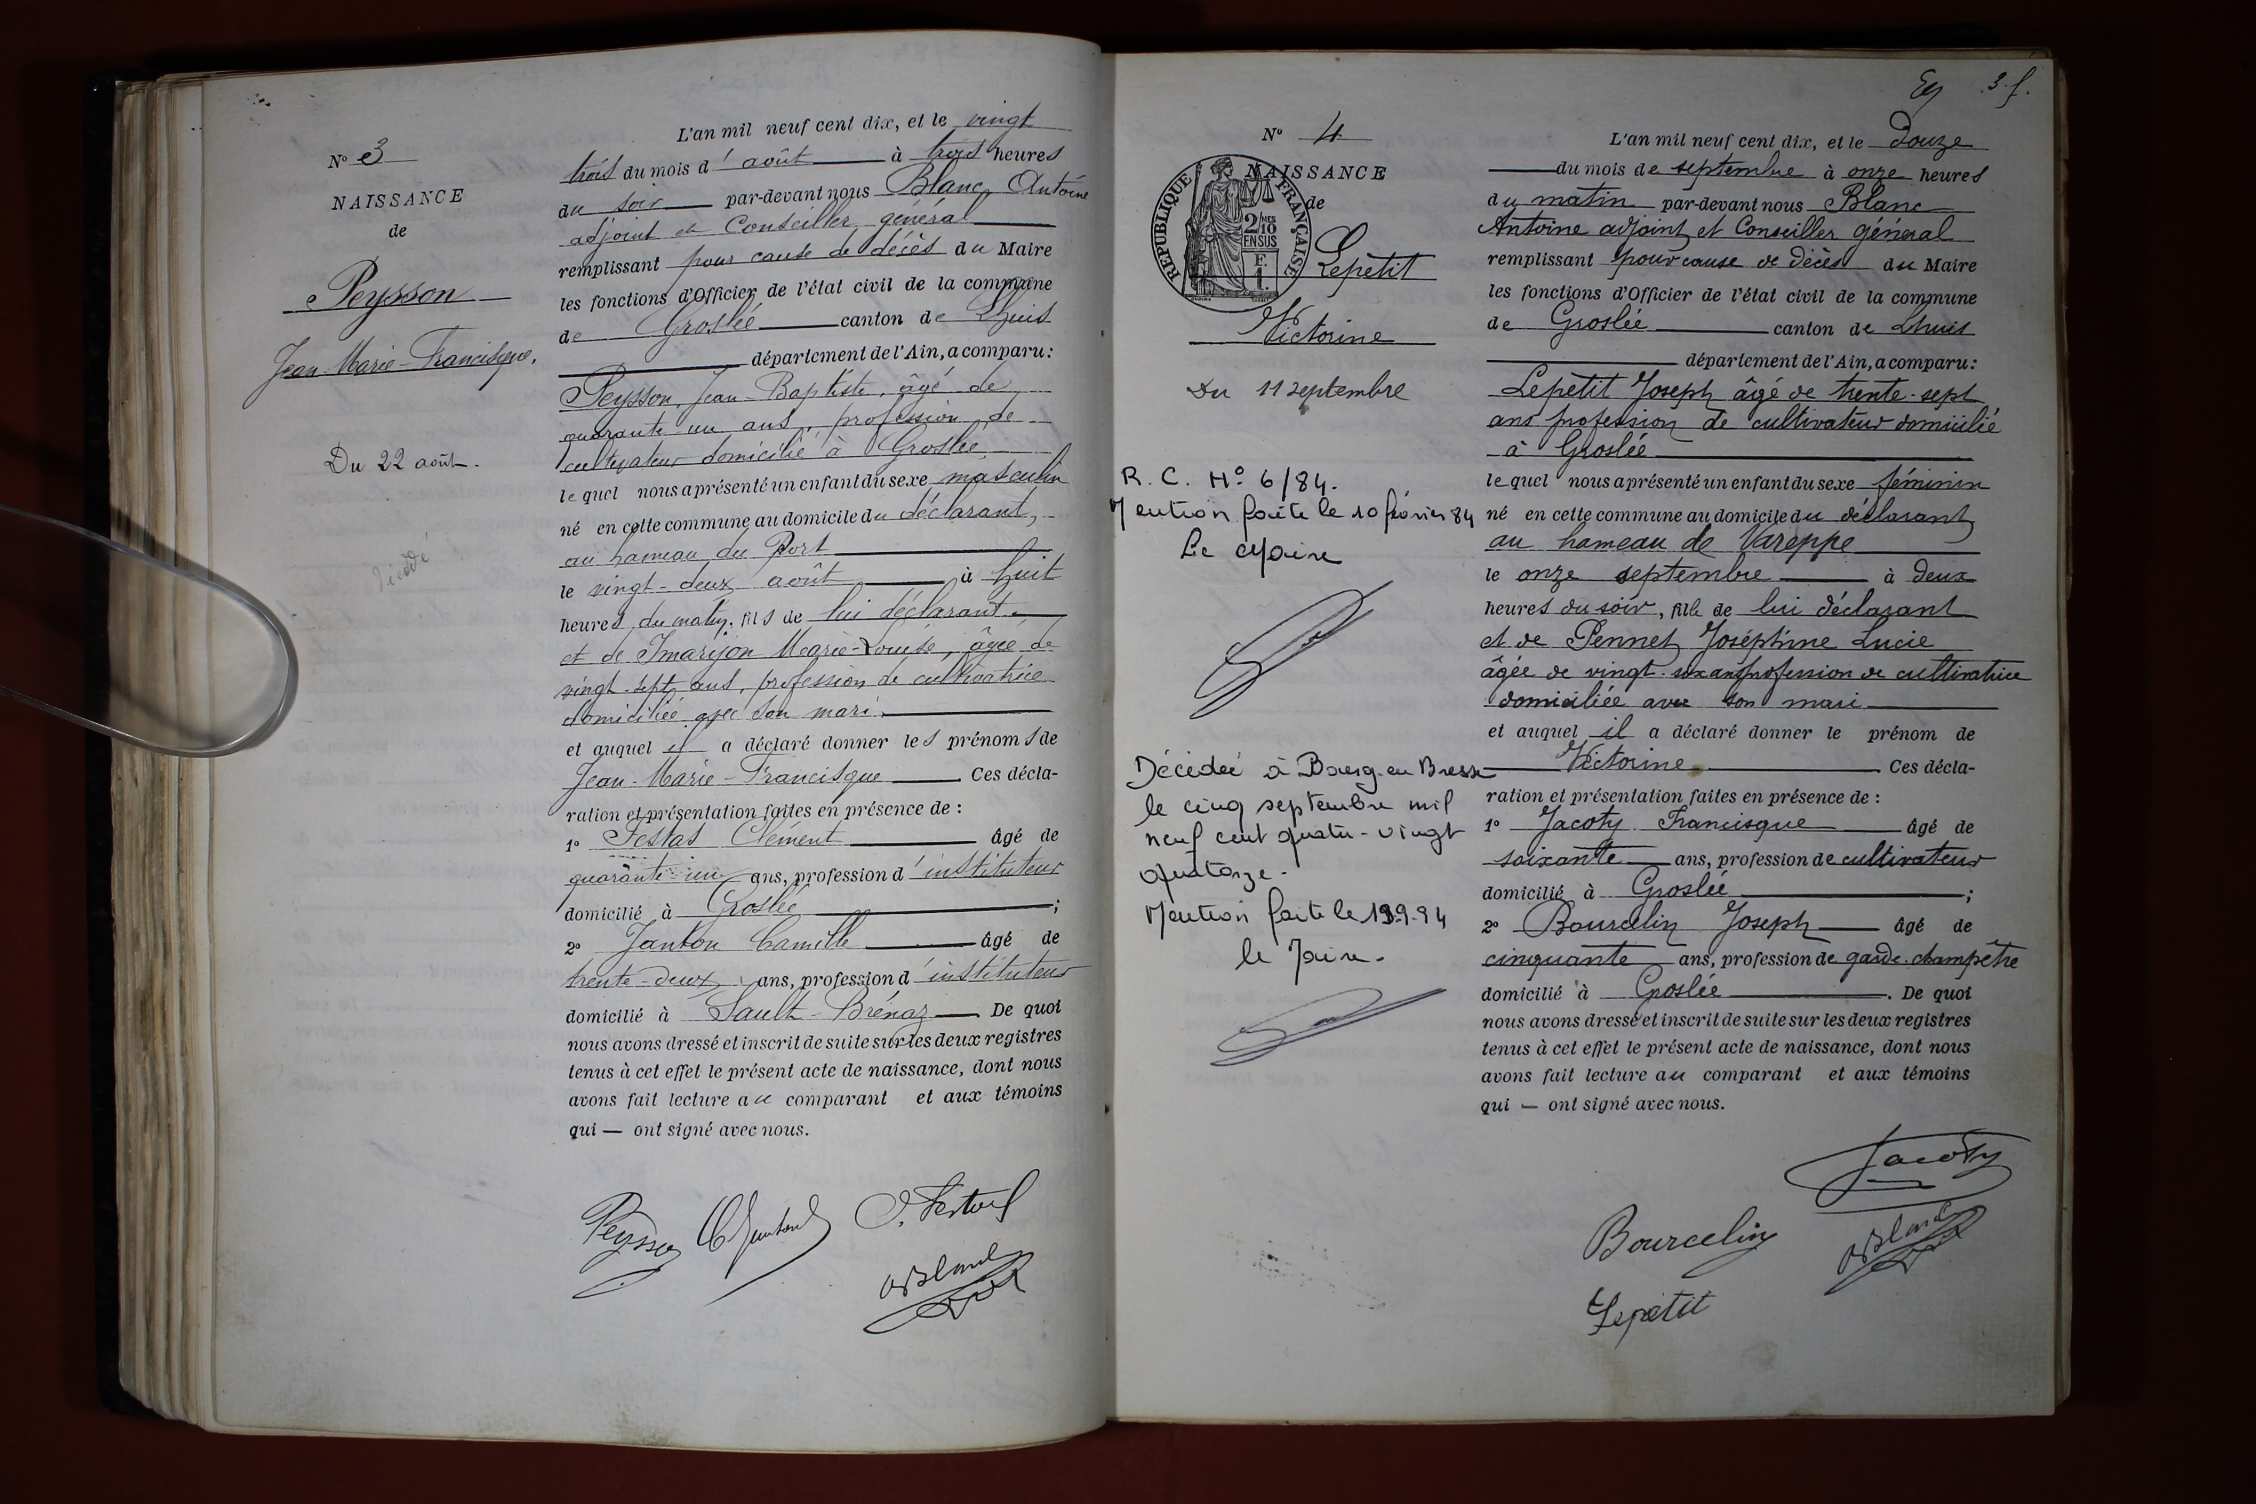 N° 3
NAISSANCE
de
Peysson
Jean-Marie-Francisque.
Du 22 août.
L'an mil neuf cent dix, et le vingt
trois du mois d'août à trois heures
du soir par-devant nous Blanc Antoine
adjoint et Conseiller général
remplissant pour cause de décès du Maire
les fonctions d'Officier de l'état civil de la commune
de Groslée canton de Lhuis
département de l'Ain, a comparu:
Peysson Jean-Baptiste, âgé de
quarante un ans, profession de
cultivateur domicilié à Groslée
lequel nous a présenté un enfant du sexe masculin
né en cette commune au domicile du déclarant,
au hameau du Port
le vingt-deux août à huit
heures du matin, fils de lui déclarant
et de Marie-Louise, âgée de
vingt-sept ans, profession de cultivatrice
domiciliée avec son mari
et auquel il a déclaré donner les prénoms de
Jean-Marie-Francisque Ces décla-
ration et présentation faites en présence de :
1° Clément âgé de
quarante un ans, profession d'instituteur
domicilié à Groslée ;
2° Camille âgé de
trente-deux ans, profession d'instituteur
domicilié à Sault-Brénaz De quoi
nous avons dressé et inscrit de suite sur les deux registres
tenus à cet effet le présent acte de naissance, dont nous
avons fait lecture au comparant et aux témoins
qui — ont signé avec nous.
Peysson
Blanc
3 f.
N° 4
NAISSANCE
de
RÉPUBLIQUE FRANÇAISE
2/10
EN SUS
F.
1.
Lepetit
Victorine
Du 11 septembre
R. C. N° 6/84.
Mention faite le 10 février 84
Le Maire
Décédée à Bourg-en Bresse
le cinq septembre mil
neuf cent quatre-vingt
quatorze.
Mention faite le 13.9.94
le Maire.
L'an mil neuf cent dix, et le douze
du mois de septembre à onze heures
du matin par-devant nous Blanc
Antoine adjoint et Conseiller général
remplissant pour cause de décès du Maire
les fonctions d'Officier de l'état civil de la commune
de Groslée canton de Lhuis
département de l'Ain, a comparu:
Lepetit Joseph âgé de trente-sept
ans profession de cultivateur domicilié
à Groslée
lequel nous a présenté un enfant du sexe féminin
né en cette commune au domicile du déclarant
au hameau de Vareppe
le onze septembre à deux
heures du soir, fille de lui déclarant
et de Pennet Joséphine Lucie
âgée de vingt-six ans profession de cultivatrice
domiciliée avec son mari
et auquel il a déclaré donner le prénom de
Victorine Ces décla-
ration et présentation faites en présence de :
1° Jacoty Francisque âgé de
soixante ans, profession de cultivateur
domicilié à Groslée ;
2° Bourcelin Joseph âgé de
cinquante ans, profession de garde-champêtre
domicilié à Groslée . De quoi
nous avons dressé et inscrit de suite sur les deux registres
tenus à cet effet le présent acte de naissance, dont nous
avons fait lecture au comparant et aux témoins
qui — ont signé avec nous.
Jacoty
Bourcelin
Blanc
Lepetit